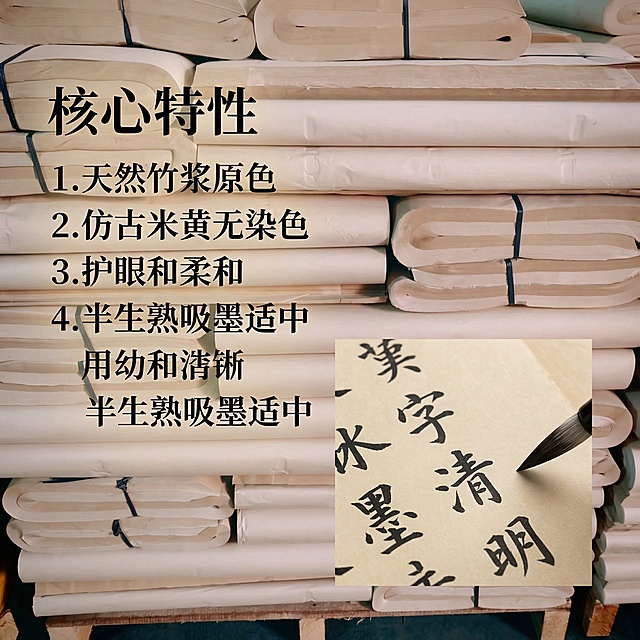 核心特性
1.天然竹浆原色
2.仿古米黄无染色
3.护眼和柔和
4.半生熟吸墨适中
用幼和
半生熟吸墨适中
字清明
墨